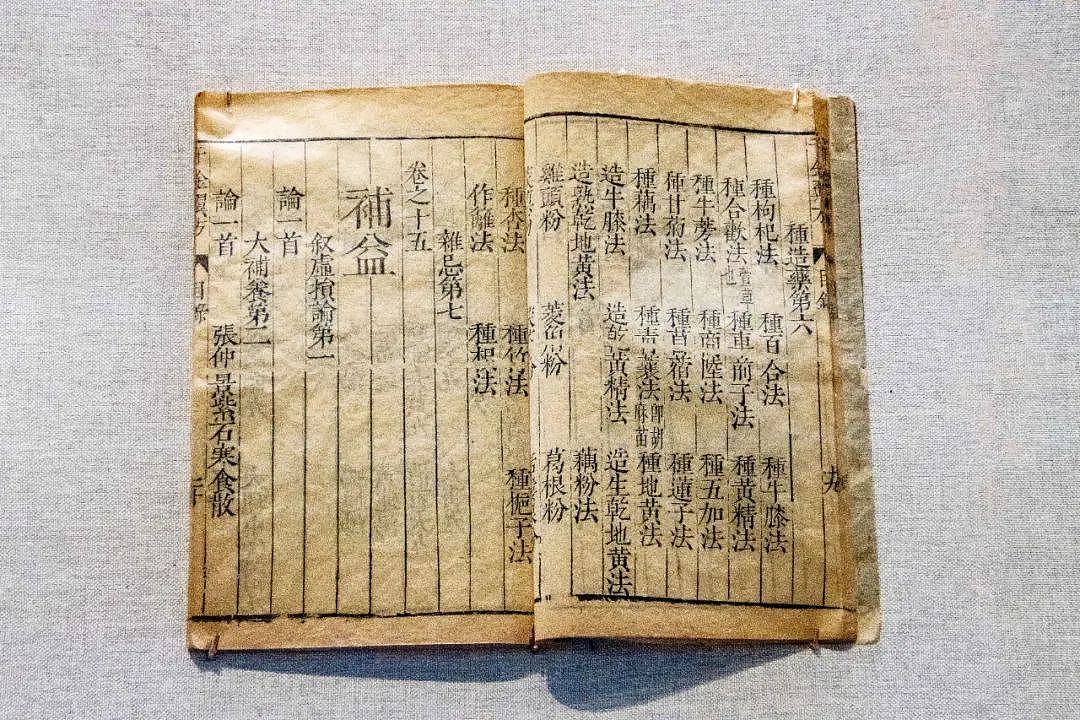 種造藥第六
種枸杞法 種百合法 種牛膝法
種合歡法萱草也 種車前子法 種黃精法
種牛蒡法 種商陸法 種五加法
種甘菊法 種苜蓿法 種蓮子法
種藕法 種青蘘法即胡麻苗 種地黃法
造牛膝法 造乾黃精法 造生乾地黃法
造熟乾地黃法 藕粉法
雞頭粉 菱角粉 葛根粉
種杏法 種竹法 種梔子法
作籬法 種枳法
雜忌第七
卷之十五
補益
叙虛損論第一
論一首
大補養第二
論一首 張仲景紫石寒食散
目錄